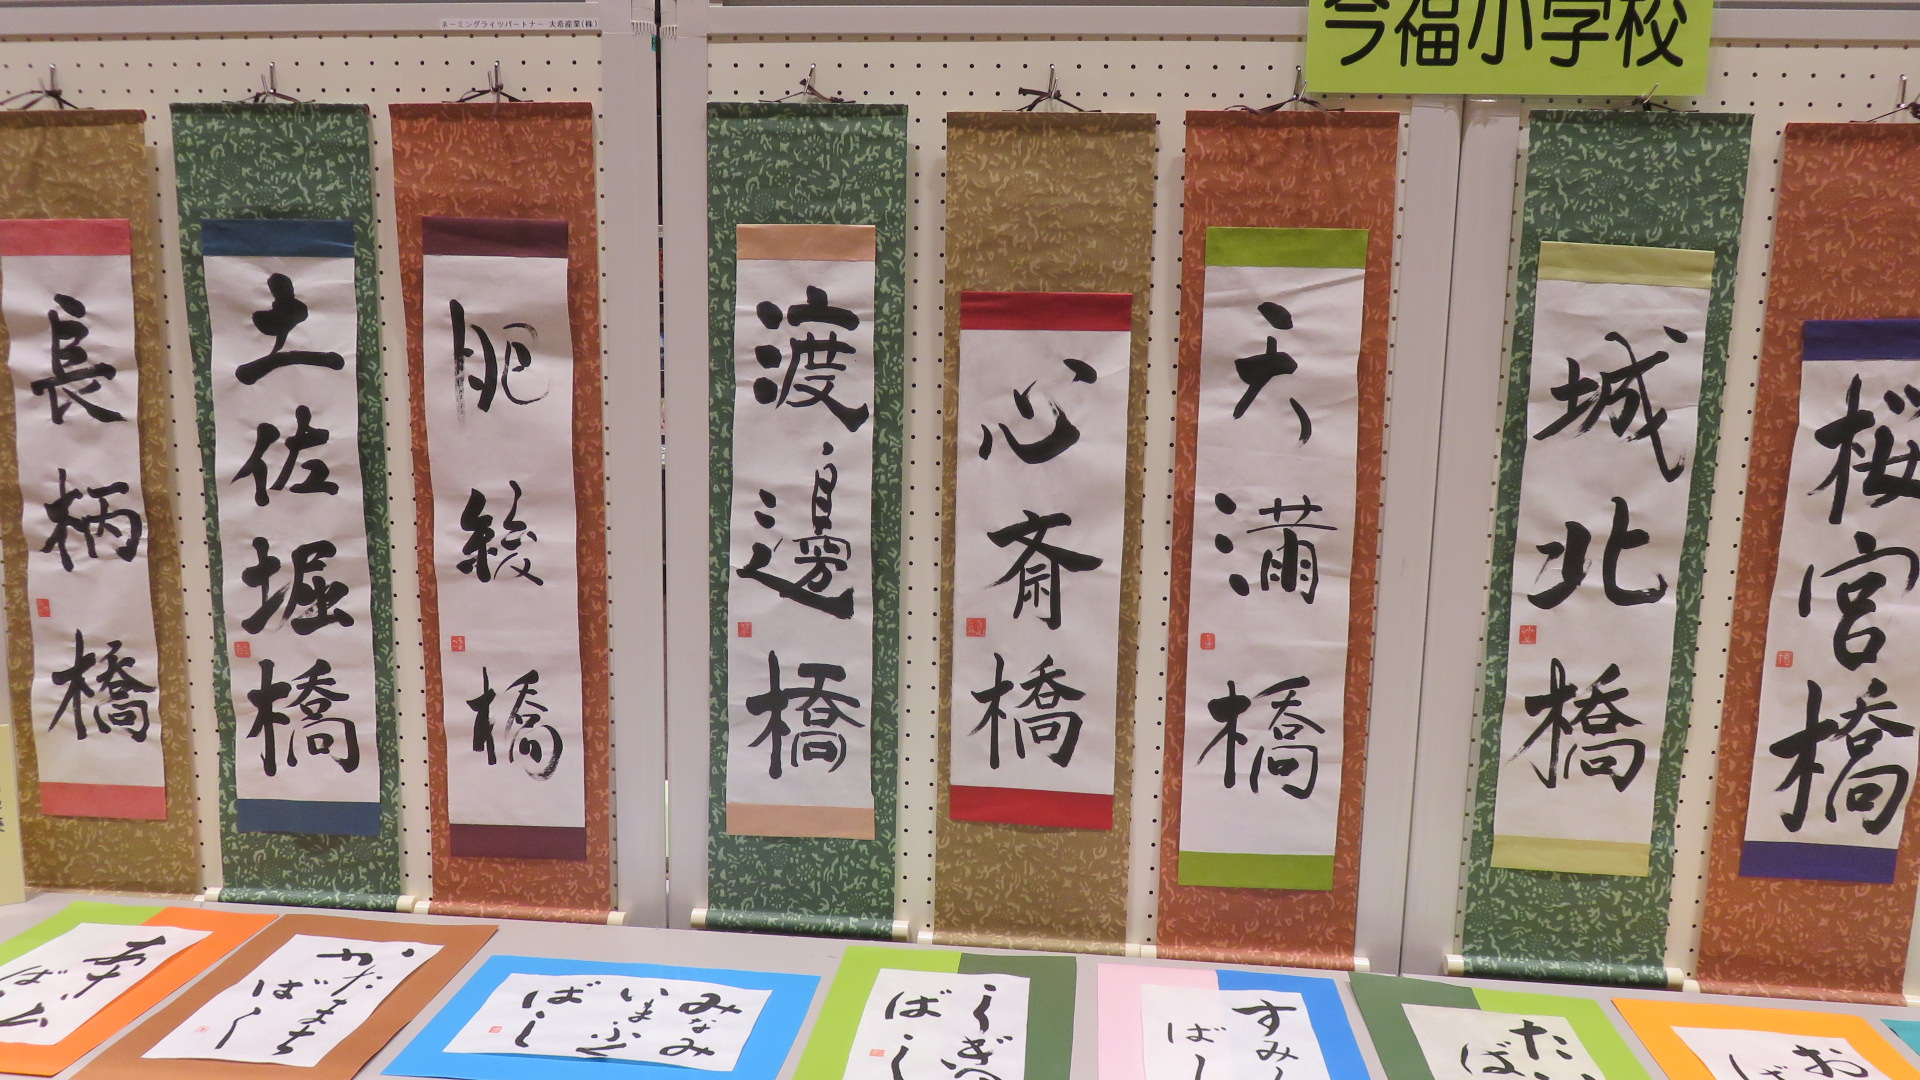 ネーミングライツパートナー 大希産業(株)
今福小学校
長柄橋
土佐堀橋
肥後橋
渡邊橋
心斎橋
天満橋
城北橋
桜宮橋
かたまち
ばし
みなみ
いまふく
ばし
ばし
すみ
ばし
たい
ば
お